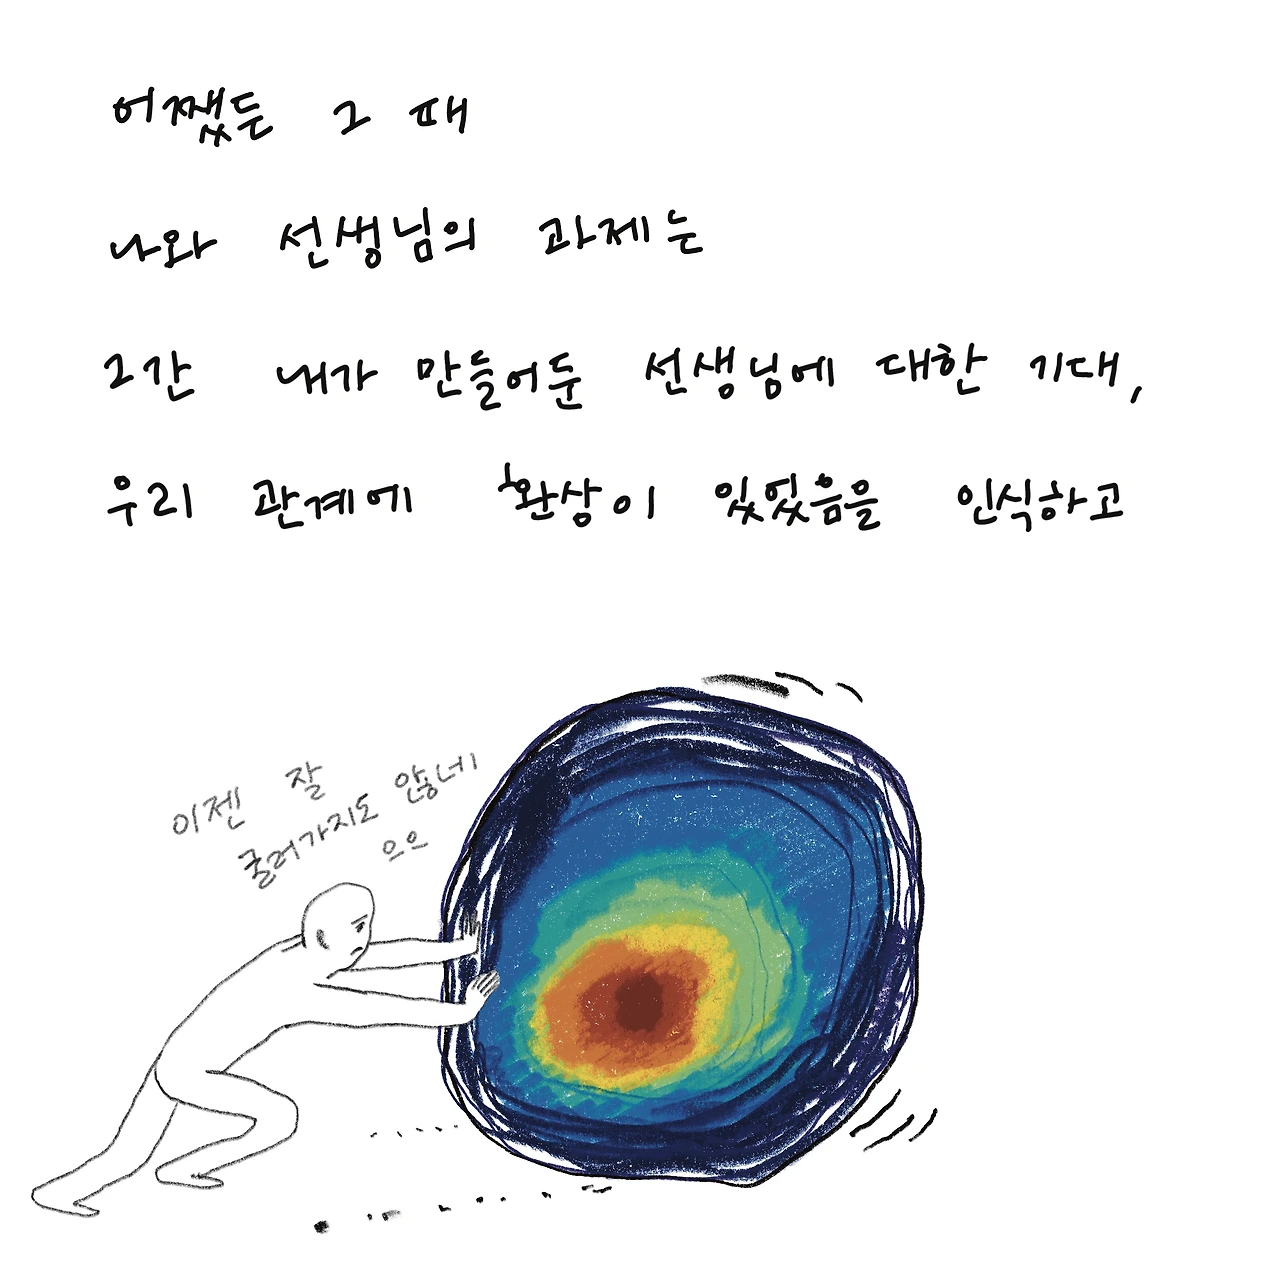 어쨌든 그 때
나와 선생님의 과제는
그간 내가 만들어둔 선생님에 대한 기대,
우리 관계에 환상이 있었음을 인식하고
이젠 잘
굴러가지도 않네
으으